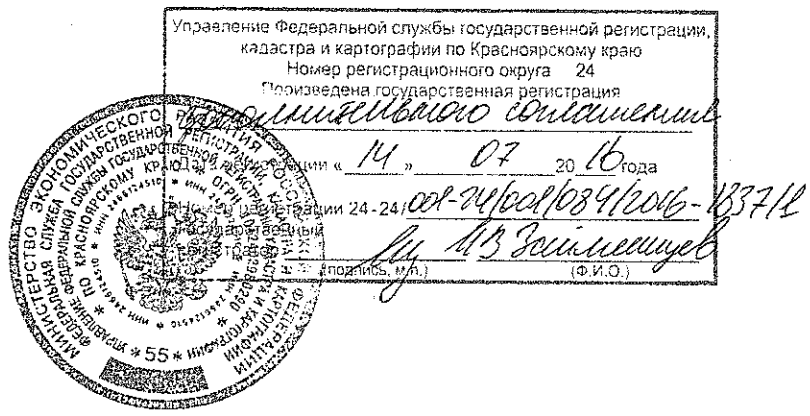 Управление Федеральной службы государственной регистрации,
кадастра и картографии по Красноярскому краю
Номер регистрационного округа 24
Произведена государственная регистрация
дополнительного соглашения
Дата регистрации « 14 » 07 20 16 года
Номер регистрации 24-24/001-24/001/084/2016-1837/2
Государственный
регистратор
(подпись, м.п.) (Ф.И.О.)
МИНИСТЕРСТВО ЭКОНОМИЧЕСКОГО РАЗВИТИЯ РОССИЙСКОЙ ФЕДЕРАЦИИ
ФЕДЕРАЛЬНАЯ СЛУЖБА ГОСУДАРСТВЕННОЙ РЕГИСТРАЦИИ, КАДАСТРА И КАРТОГРАФИИ
УПРАВЛЕНИЕ ФЕДЕРАЛЬНОЙ СЛУЖБЫ ГОСУДАРСТВЕННОЙ РЕГИСТРАЦИИ, КАДАСТРА И КАРТОГРАФИИ
ПО КРАСНОЯРСКОМУ КРАЮ * ОГРН
* ИНН 2466124510 * ИНН 2466124510
* 55 *